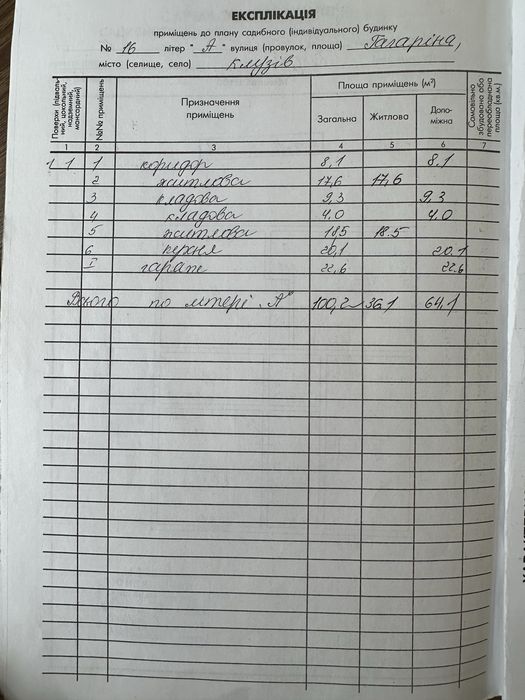 ЕКСПЛІКАЦІЯ
приміщень до плану садибного (індивідуального) будинку
№ 16 літер "А" вулиця (провулок, площа) Гагаріна,
місто (селище, село) Клузів
Поверхи (підвальний, цокольний, надземний, мансардний) №№ приміщень Призначення приміщень Площа приміщень (м²) Самовільно збудована або переобладнана площа (кв.м)
Загальна Житлова Допоміжна
1 2 3 4 5 6 7
1 1 коридор 8,1 8.1
2 житлова 17,6 17,6
3 кладова 9,3 9,3
4 кладова 4.0 4.0
5 житлова 18.5 18.5
6 кухня 20,1 20.1
I гараж 22,6 22.6
Всього по літері "А" 100,2 36.1 64,1